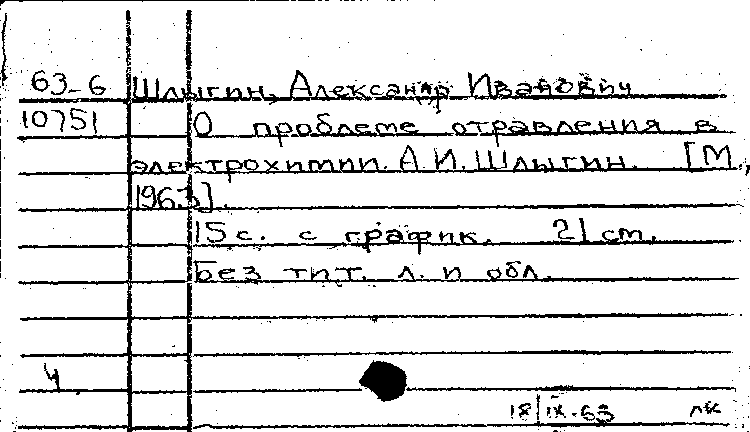 63-6 Шлыгин, Александр Иванович
10751 О проблеме отравления в
электрохимии. А.И. Шлыгин. [М.,
1963].
15 с. с график. 21 см.
Без тит. л. и обл.
4
18/IX-63 лк